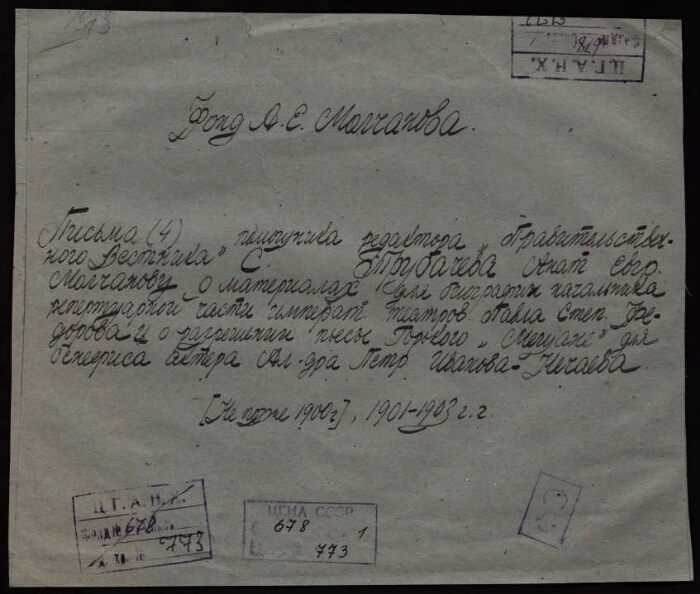 Ц.Г.А.Н.Х.
678
Фонд А. Е. Молчанова.
Письма (4) помощника редактора „Правительствен-
ного Вестника" С. Трубачева Анат. Евгр.
Молчанову о материалах для биографии начальника
репертуарной части императ. театров Павла Степ. Фе-
дорова и о разрешении пьесы Горького „Мещане" для
бенефиса актера Ал-дра Петр. Иванова-Нечаева.
[Не позже 1900г], 1901-1903 г.г.
Ц.Г.А.Н.Х.
678
773
ЦГИА СССР
678 1
773